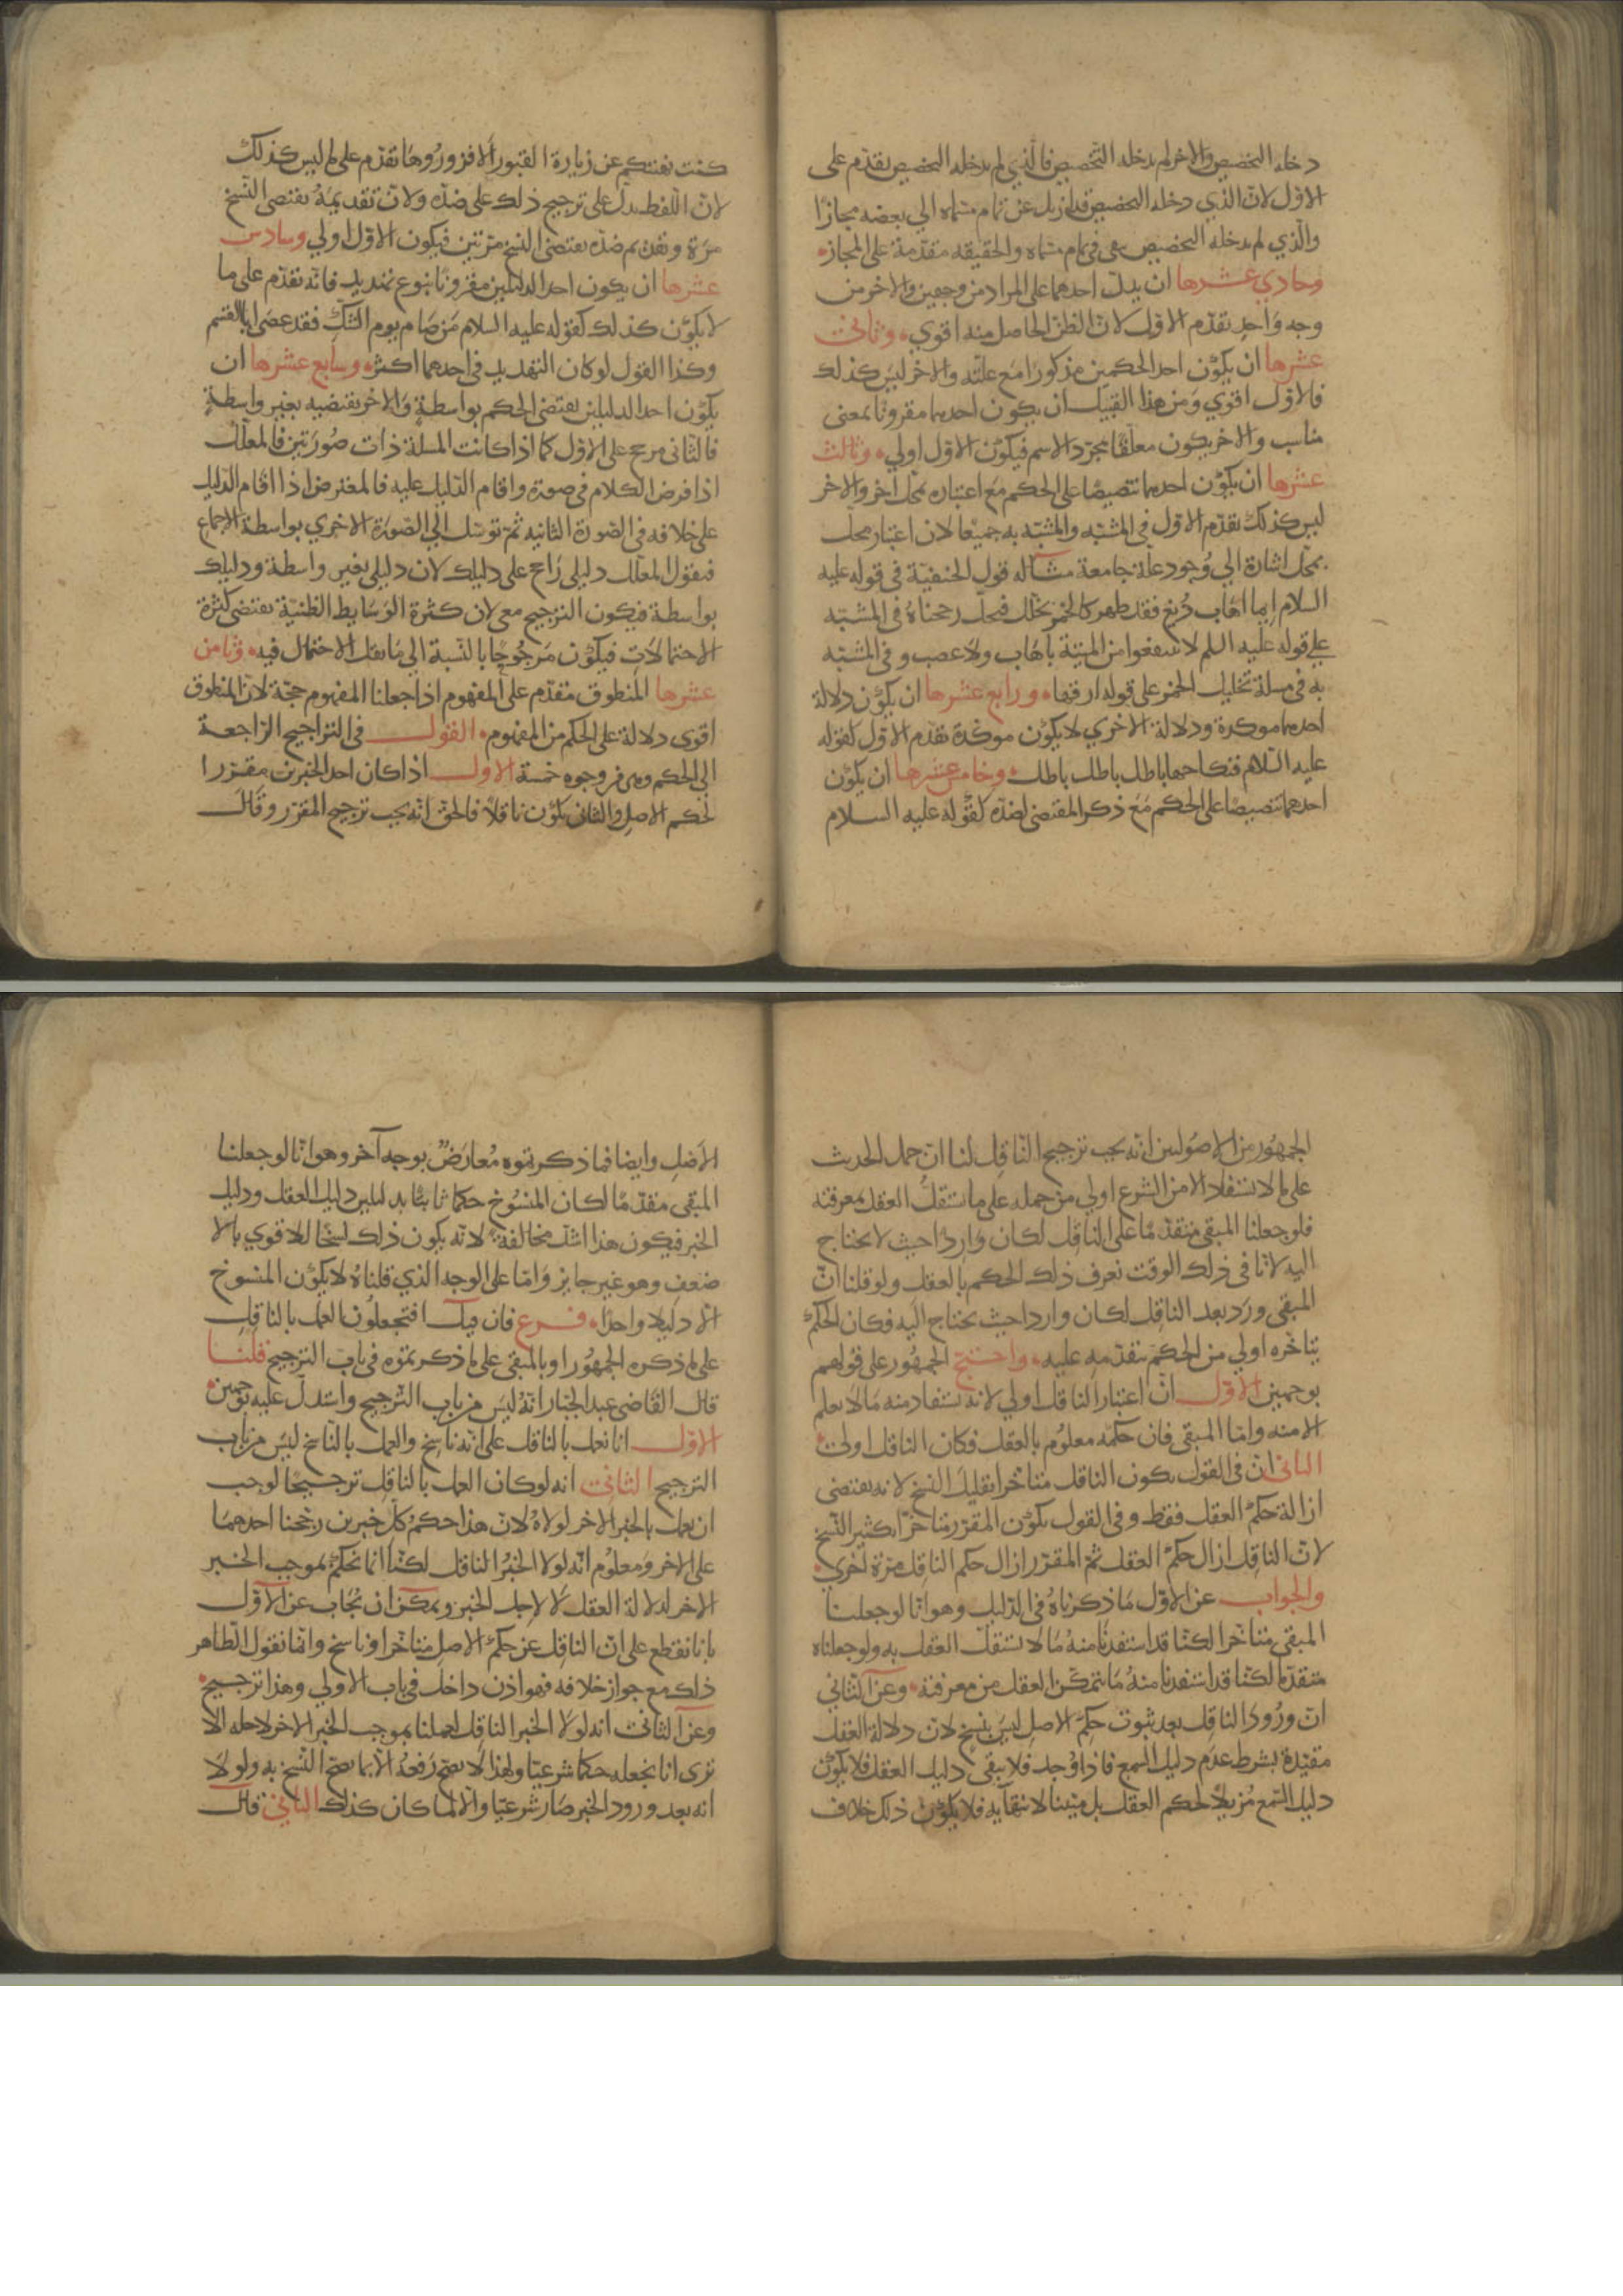 دخله التخصيص والاخر لم يدخله التخصيص فالذي لم يدخله التخصيص يقدم على
الاول لان الذي دخله التخصيص قد ازيل عن تمام مسماه الي بعضه مجازا
والذي لم يدخله التخصيص بقى في تمام مسماه والحقيقه مقدمة على المجاز
وحادي عشرها ان يدل احدهما على المراد من وجهين والاخر من
وجه واحد يقدم الاول لان الظن الحاصل منه اقوي وثاني
عشرها ان يكون احد الحكمين مذكورا مع علته والاخر ليس كذلك
فالاول اقوي ومن هذا القبيل ان يكون احدهما مقرونا بمعنى
مناسب والاخر يكون معلقا بمجرد الاسم فيكون الاول اولي وثالث
عشرها ان يكون احدهما تنصيصا على الحكم مع اعتباره بمحل اخر والاخر
ليس كذلك يقدم الاول في المشبه والمشبه به جميعا لان اعتبار محل
بمحل اشارة الي وجود علة جامعة مثاله قول الحنفية في قوله عليه
السلام ايما اهاب دبغ فقد طهر كالخمر تخلل فيحل رجحناه في المشبه
علي قوله عليه السلم لا تنتفعوا من الميتة باهاب ولا عصب وفي المشبه
به في مسلة تخليل الخمر على قوله ارقها ورابع عشرها ان يكون دلالة
احدهما موكدة ودلالة الاخري لا يكون موكدة يقدم الاول كقوله
عليه السلام فنكاحها باطل باطل باطل وخامس عشرها ان يكون
احدهما تنصيصا على الحكم مع ذكر المقتضى لضده كقوله عليه السلام
كنت نهيتكم عن زيارة القبور الا فزوروها تقدم على ما ليس كذلك
لان اللفظ يدل على ترجيح ذلك على ضده ولان تقديمه يقتضى النسخ
مرة وتقديم ضده يقتضى النسخ مرتين فيكون الاول اولي وسادس
عشرها ان يكون احد الدليلين مقرونا بنوع تهديد فانه يقدم على ما
لا يكون كذلك كقوله عليه السلام من صام يوم الشك فقد عصى ابا القسم
وكذا القول لو كان التهديد في احدهما اكثر وسابع عشرها ان
يكون احد الدليلين يقتضى الحكم بواسطة والاخر يقتضيه بغير واسطة
فالثاني مرجح على الاول كما اذا كانت المسلة ذات صورتين فالمعلل
اذا فرض الكلام في صورة واقام الدليل عليه فالمعترض اذا اقام الدليل
على خلافه في الصورة الثانيه ثم توسل الي الصورة الاخري بواسطة الاجماع
فيقول المعلل دليلي راجح على دليلك لان دليلي بغير واسطة ودليلك
بواسطة فيكون الترجيح معي لان كثرة الوسايط الظنية يقتضى كثرة
الاحتمالات فيكون مرجوحا بالنسبة الي ما يقل الاحتمال فيه وثامن
عشرها المنطوق مقدم على المفهوم اذا جعلنا المفهوم حجة لان المنطوق
اقوى دلالة على الحكم من المفهوم القول في التراجيح الراجعة
الي الحكم وهى من وجوه خمسة الاول اذا كان احد الخبرين مقررا
لحكم الاصل والثاني يكون ناقلا فالحق انه يجب ترجيح المقرر وقال
الجمهور من الاصوليين انه يجب ترجيح الناقل لنا ان حمل الحديث
على ما لا يستفاد الا من الشرع اولي من حمله على ما يستقل العقل بمعرفته
فلو جعلنا المبقى متقدما على الناقل لكان واردا حيث لا يحتاج
اليه لانا في ذلك الوقت نعرف ذلك الحكم بالعقل ولو قلنا ان
المبقى ورد بعد الناقل لكان واردا حيث يحتاج اليه فكان الحكم
بتاخره اولي من الحكم بتقدمه عليه واحتج الجمهور على قولهم
بوجهين الاول ان اعتبار الناقل اولي لانه يستفاد منه ما لا يعلم
الا منه واما المبقى فان حكمه معلوم بالعقل فكان الناقل اولى
الثاني ان في القول بكون الناقل متاخرا تقليل النسخ لانه يقتضى
ازالة حكم العقل فقط وفي القول بكون المقرر متاخرا يكثير النسخ
لان الناقل ازال حكم العقل ثم المقرر ازال حكم الناقل مرة اخري
والجواب عن الاول ما ذكرناه في الدليل وهو انا لو جعلنا
المبقى متاخرا لكنا قد استفدنا منه ما لا يستقل العقل به ولو جعلناه
متقدما لكنا قد استفدنا منه ما يتمكن العقل من معرفته وعن الثاني
ان ورود الناقل بعد ثبوت حكم الاصل ليس بنسخ لان دلالة العقل
مقيدة بشرط عدم دليل السمع فاذا وجد فلا يبقى دليل العقل فلا يكون
دليل السمع مزيلا لحكم العقل بل مبينا لانتهايه فلا يكون ذلك خلاف
الاصل وايضا فما ذكرتموه معارض بوجه آخر وهو انا لو جعلنا
المبقى مقدما لكان المنسوخ حكما ثابتا بدليلين دليل العقل ودليل
الخبر فيكون هذا اشد مخالفة لانه يكون ذلك نسخا للاقوي بالا
ضعف وهو غير جايز واما على الوجه الذي قلناه لا يكون المنسوخ
الا دليلا واحدا فرع فان قيل افتجعلون العمل بالناقل
على ما ذكره الجمهور او بالمبقى على ما ذكرتموه في باب الترجيح قلنا
قال القاضى عبد الجبار انه ليس من باب الترجيح واستدل عليه بوجهين
الاول انا نعمل بالناقل على انه ناسخ والعمل بالناسخ ليس من باب
الترجيح الثاني انه لو كان العمل بالناقل ترجيحا لوجب
ان يعمل بالخبر الاخر لولاه لان هذا حكم كل خبرين رجحنا احدهما
على الاخر ومعلوم انه لولا الخبر الناقل لكنا انما نحكم بموجب الخبر
الاخر لدلالة العقل لا لاجل الخبر ويمكن ان يجاب عن الاول
بانا نقطع على ان الناقل عن حكم الاصل متاخر او ناسخ وانما نقول الظاهر
ذلك مع جواز خلافه فهو اذن داخل في باب الاولي وهذا ترجيح
وعن الثاني انه لولا الخبر الناقل لعملنا بموجب الخبر الاخر لاجله الا
ترى انا نجعله حكما شرعيا ولهذا لا يصح رفعه الا بما يصح النسخ به ولولا
انه بعد ورود الخبر صار شرعيا والا لما كان كذلك الثاني قال